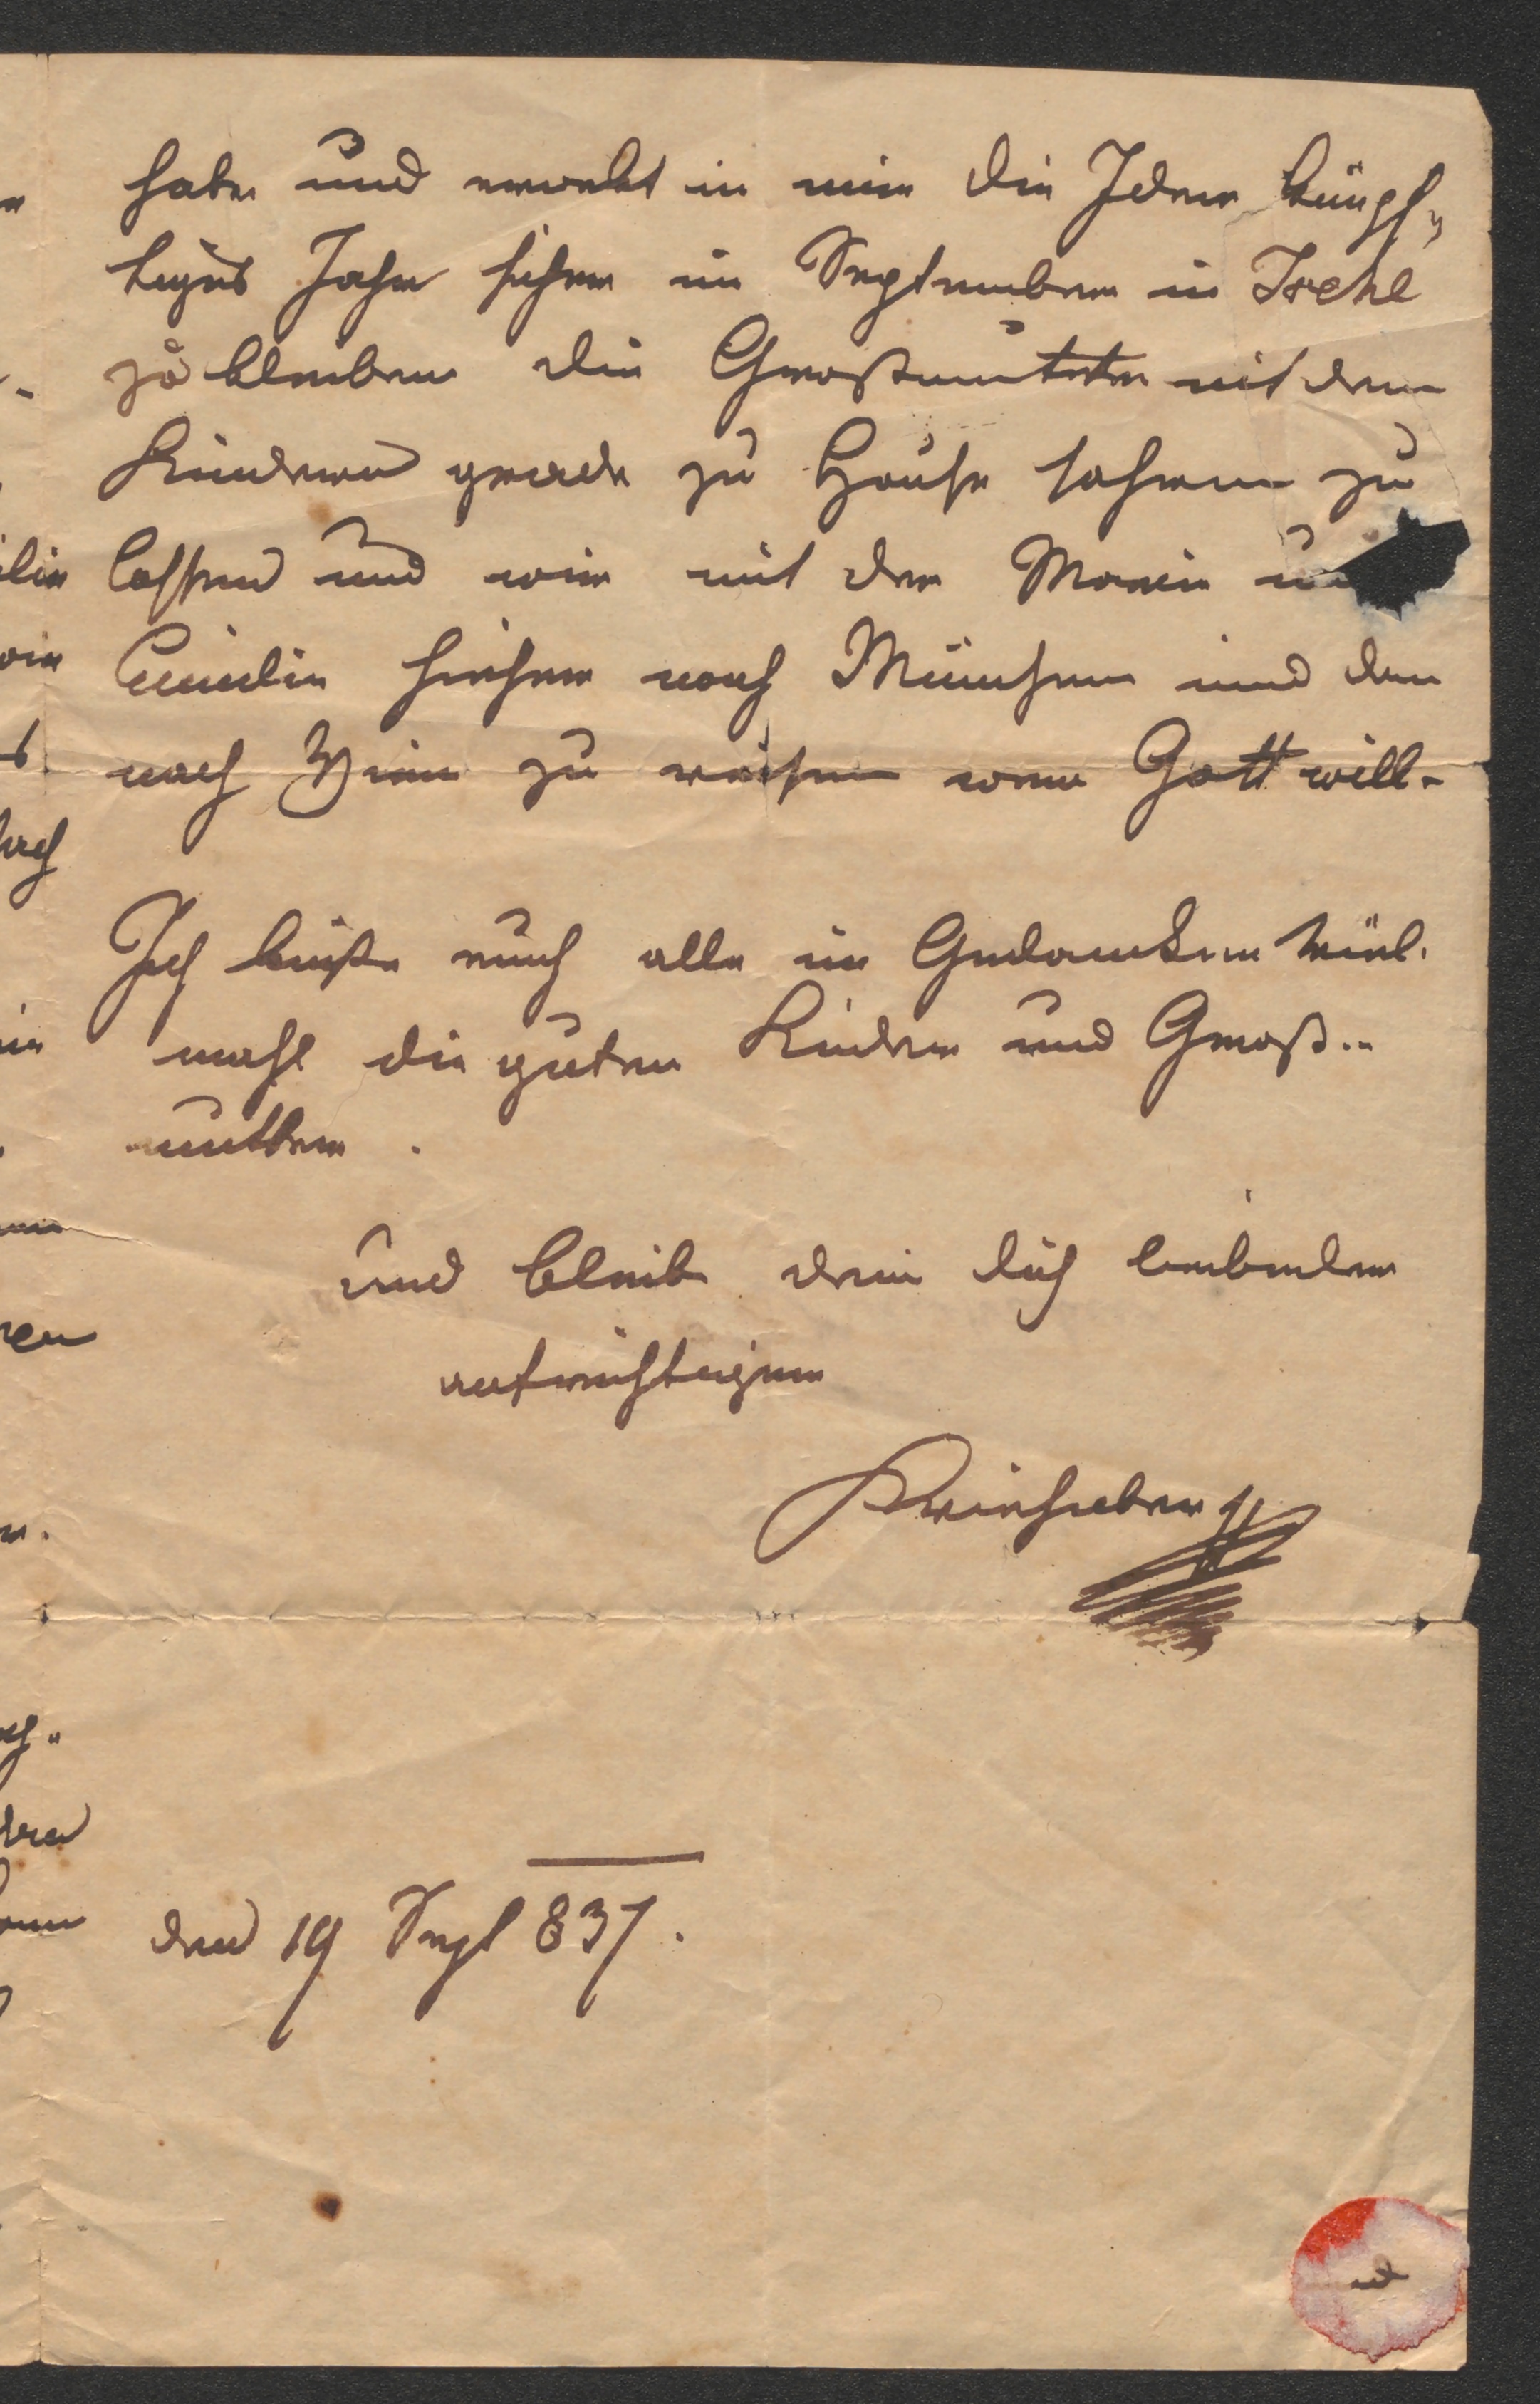 habe und erwekt in mir die Ideen künpf„
tiges Jahr früher im September in Ischl
zu bleiben die Großmutter mit den
Kindern gerade zu Hause fahren zu
lassen und wir mit der Marie u
Emilie hieher nach München und den
nach Wien zu reisen wenn Gott will.
Ich küße euch alle in Gedancken viel.
mahl die guten Kinder und Groß..
mutter.
Und bleibe dein dich liebender
aufrichtiger
Kriehuber
den 19 Sept 837.